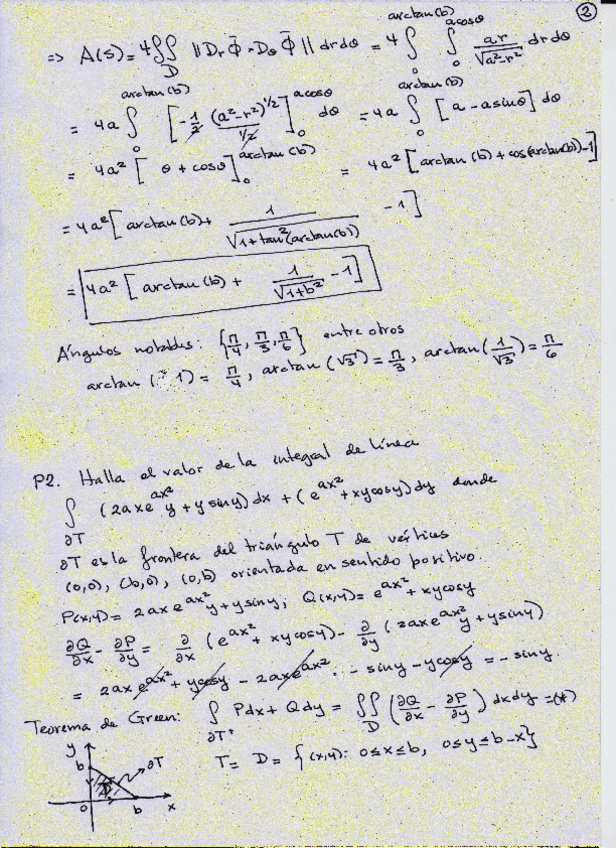 2
⇒ A(S) = 4 ∬_D ‖D_r Φ̄ × D_θ Φ̄‖ dr dθ = 4 ∫_0^{arctan(b)} ∫_0^{a cosθ} ar/√(a²-r²) dr dθ
= 4a ∫_0^{arctan(b)} [-1/2 (a²-r²)^{1/2}/(1/2)]_0^{a cosθ} dθ = 4a ∫_0^{arctan(b)} [a - a sinθ] dθ
= 4a² [θ + cosθ]_0^{arctan(b)} = 4a² [arctan(b) + cos(arctan(b)) - 1]
= 4a² [arctan(b) + 1/√(1+tan²(arctan(b))) - 1]
= 4a² [arctan(b) + 1/√(1+b²) - 1]
Ángulos notables: {π/4, π/3, π/6} entre otros
arctan (1) = π/4, arctan (√3) = π/3, arctan(1/√3) = π/6
P2. Halla el valor de la integral de línea
∫_{∂T} (2axe^{ax²}y + y siny) dx + (e^{ax²} + xycosy) dy donde
∂T es la frontera del triángulo T de vértices
(0,0), (b,0), (0,b) orientada en sentido positivo.
P(x,y) = 2axe^{ax²}y + ysiny; Q(x,y) = e^{ax²} + xycosy
∂Q/∂x - ∂P/∂y = ∂/∂x (e^{ax²} + xycosy) - ∂/∂y (2axe^{ax²}y + ysiny)
= 2axe^{ax²} + ycosy - 2axe^{ax²} - siny - ycosy = -siny.
Teorema de Green: ∫_{∂T⁺} Pdx + Qdy = ∬_D (∂Q/∂x - ∂P/∂y) dxdy = (*)
T = D = {(x,y): 0≤x≤b, 0≤y≤b-x}
y
b
∂T
D
0
b
x